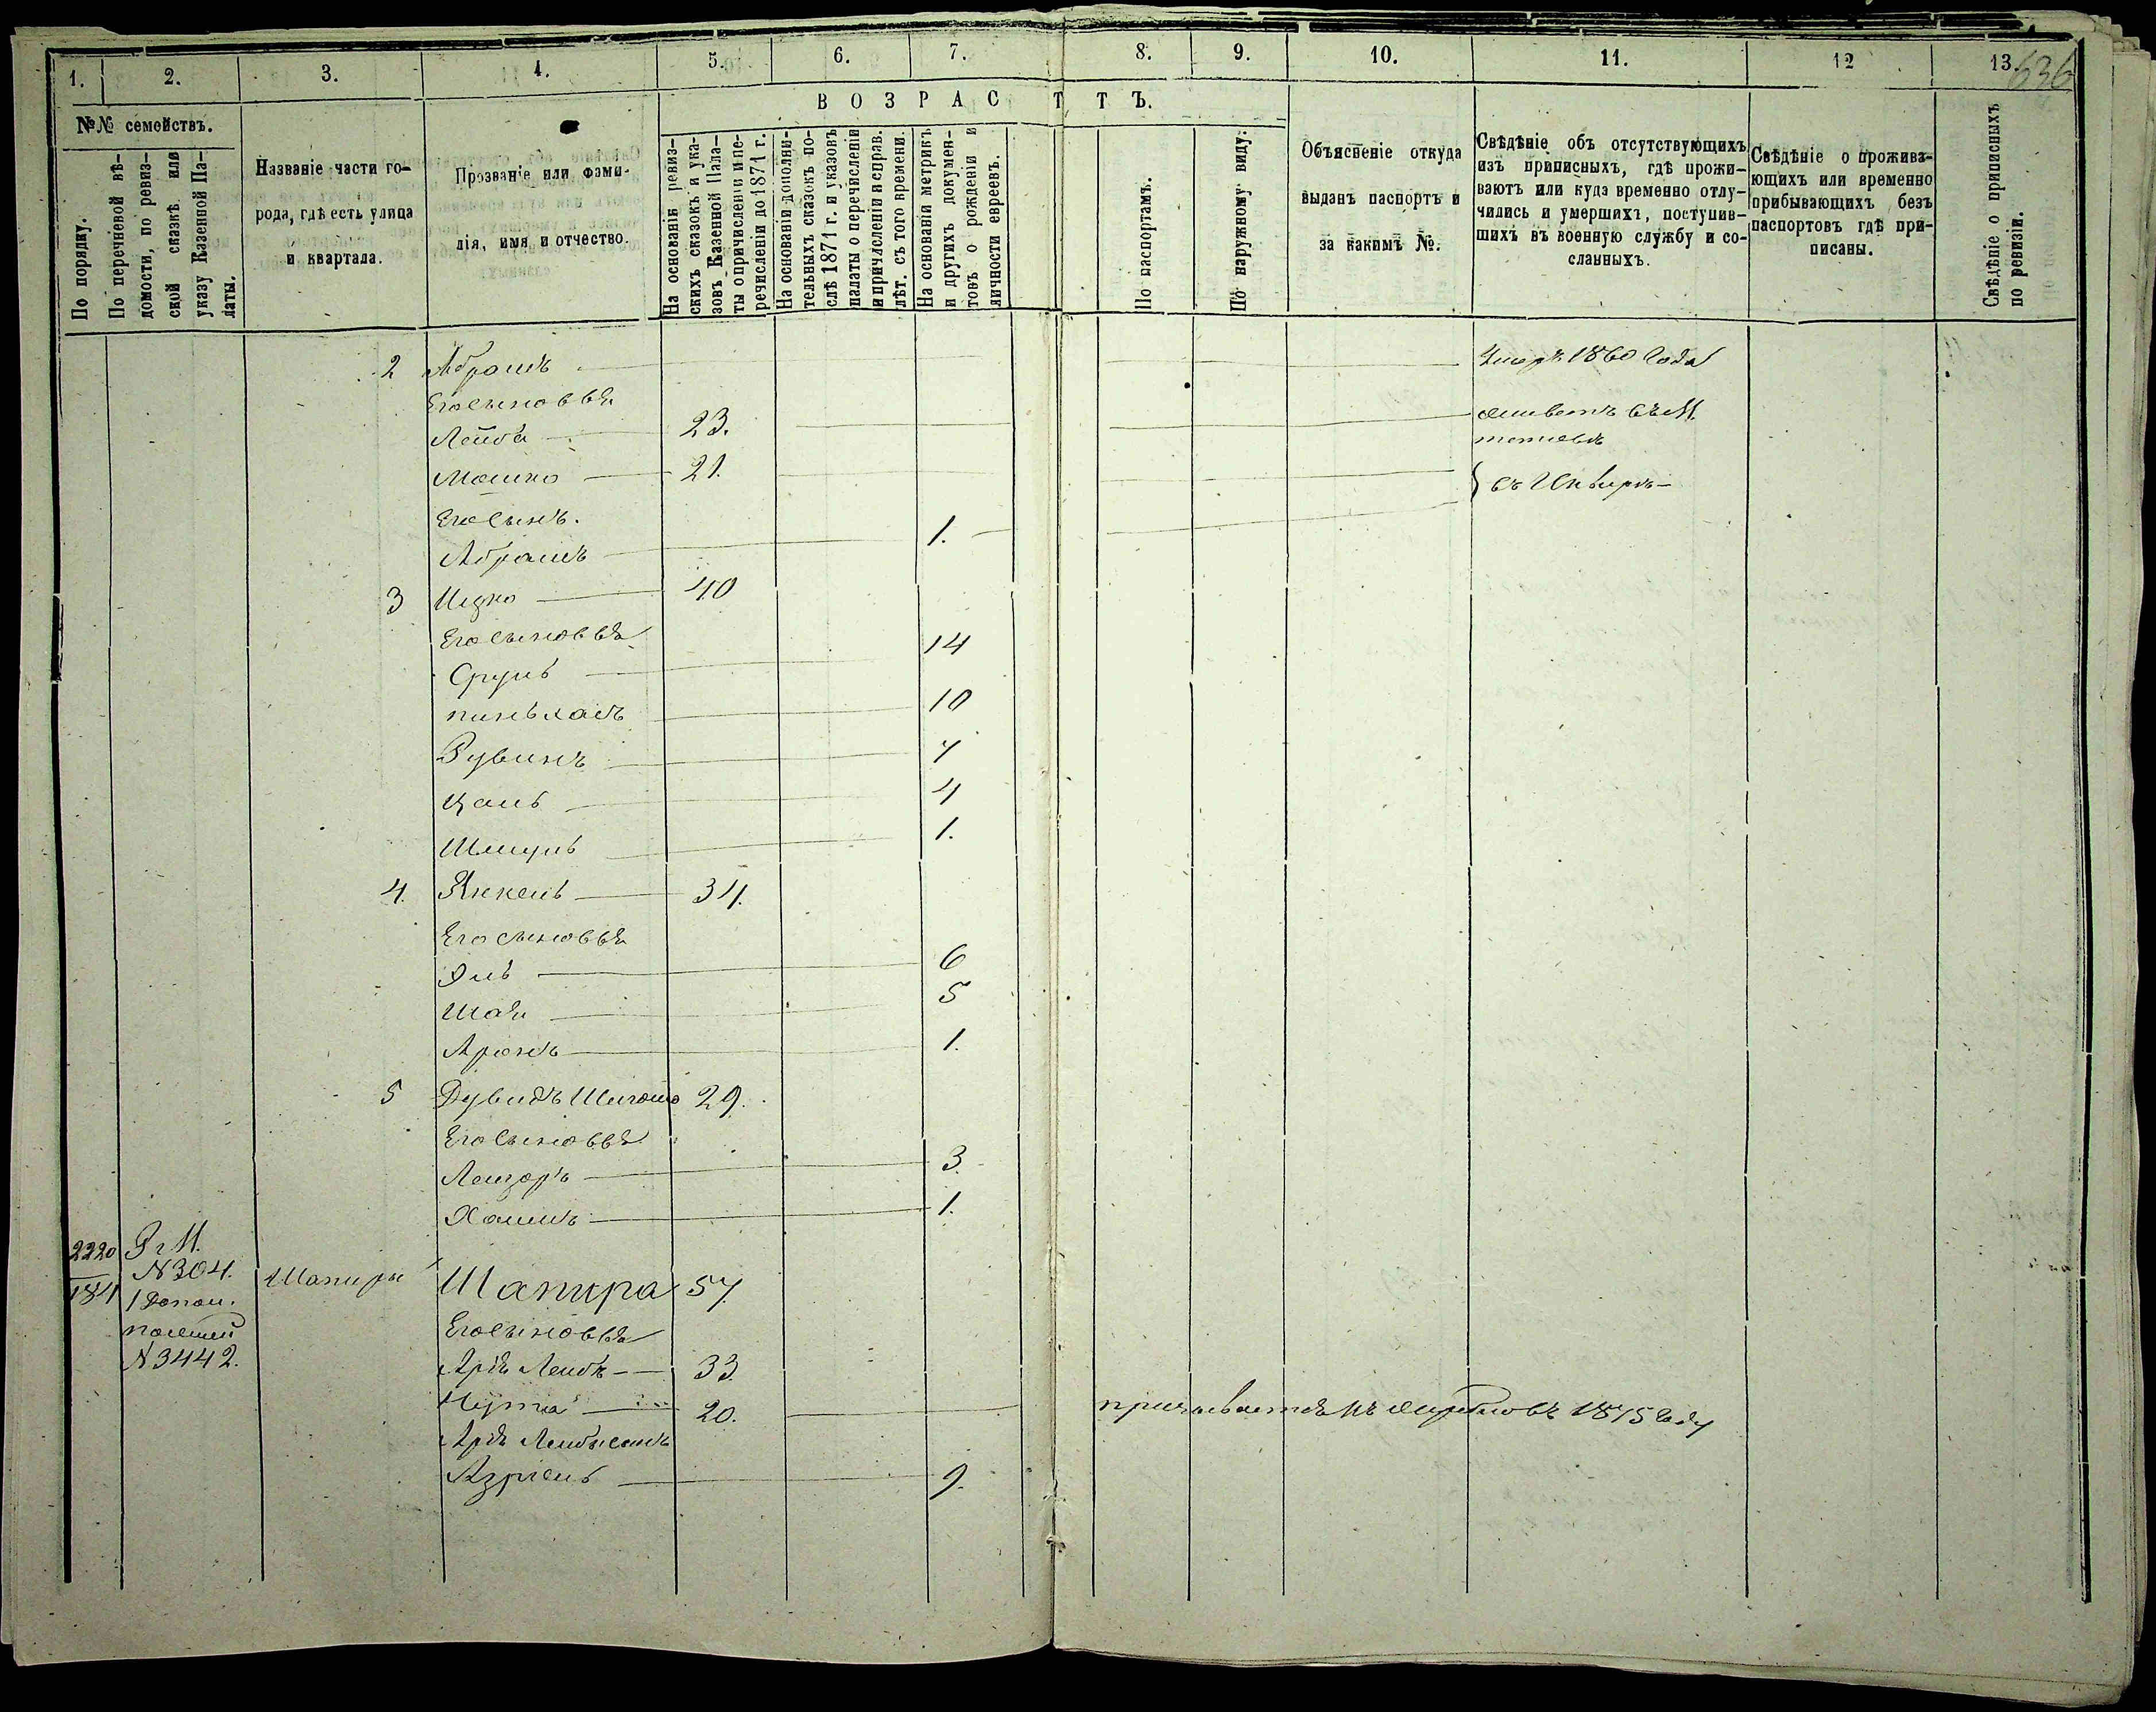 1. 2. 3. 4. 5. 6. 7. 8. 9. 10. 11. 12 13.
636
№№ семействъ.
По порядку.
По перечневой вѣ-
домости, по ревиз-
ской сказкѣ или
указу Казенной Па-
латы.
Названіе части го-
рода, гдѣ есть улица
и квартала.
Прозваніе или фами-
лія, имя и отчество.
ВОЗРАСТ ТЪ.
На основаніи ревиз-
скихъ сказокъ и ука-
зовъ Казенной Пала-
ты о причисленіи и пе-
речисленіи до 1871 г.
На основаніи дополни-
тельныхъ сказокъ по-
слѣ 1871 г. и указовъ
палаты о перечисленіи
и причисленіи и справ.
лѣт. съ того времени.
На основаніи метрикъ
и другихъ докумен-
товъ о рожденіи и
личности евреевъ.
По паспортамъ.
По наружному виду.
Объясненіе откуда
выданъ паспортъ и
за какимъ №.
Свѣдѣніе объ отсутствующихъ
изъ приписныхъ, гдѣ прожи-
ваютъ или куда временно отлу-
чились и умершихъ, поступив-
шихъ въ военную службу и со-
сланныхъ.
Свѣдѣніе о прожива-
ющихъ или временно
прибывающихъ безъ
паспортовъ гдѣ при-
писаны.
Свѣдѣніе о приписныхъ
по ревизіи.
2 Абрамъ Умеръ 1860 года
Его сыновья
Лейба 23. живетъ въ М.
Мошко 21. въ
Его сынъ.
Абрамъ 1.
3 Ицко 40
Его сыновья
Сруль 14
пиньхасъ 10
Рувинъ 7
Цаль 4
Шмуль 1.
4. Янкель 34.
Его сыновья
Эль 6
Шая 5
Аронъ 1.
5 Дувидъ Шлiома 29.
Его сыновья
Лейзоръ 3.
Хаимъ 1.
2220
184
Рг М.
N 304.
1 Допол.
N 3442.
Шапира
Шапира 57
Его сыновья
Арiя Лейбъ 33
Нута 20.
1875 году
Арiя Лейбы сынъ
Азрiель 9.